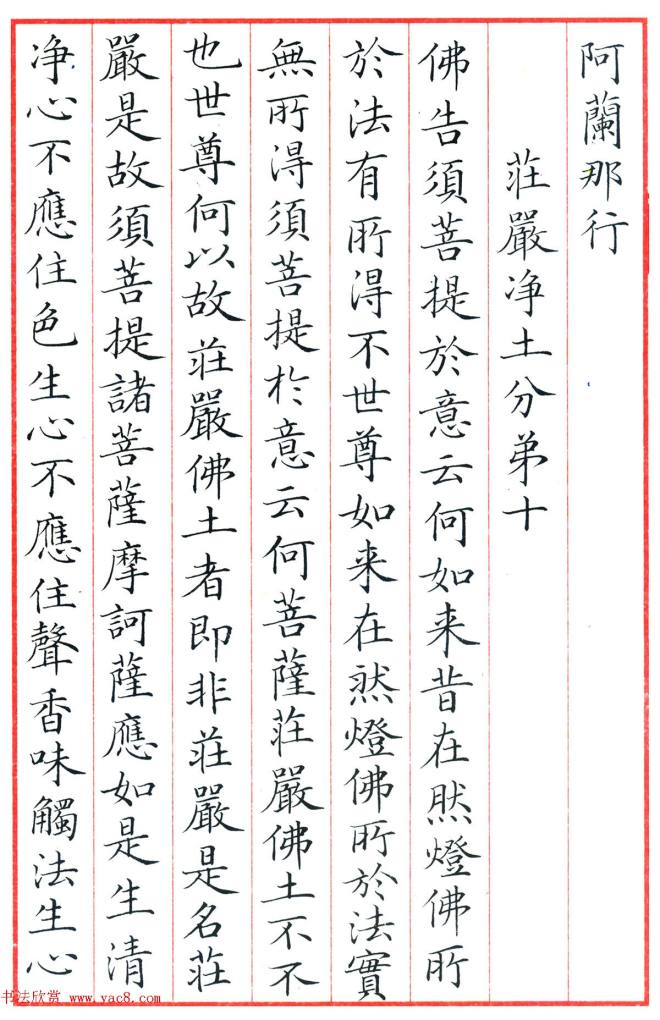 阿蘭那行
莊嚴净土分弟十
佛告須菩提於意云何如来昔在然燈佛所
於法有所得不世尊如来在然燈佛所於法實
無所得須菩提於意云何菩薩莊嚴佛土不不
也世尊何以故莊嚴佛土者即非莊嚴是名莊
嚴是故須菩提諸菩薩摩訶薩應如是生清
净心不應住色生心不應住聲香味觸法生心
书法欣赏 www.yac8.com